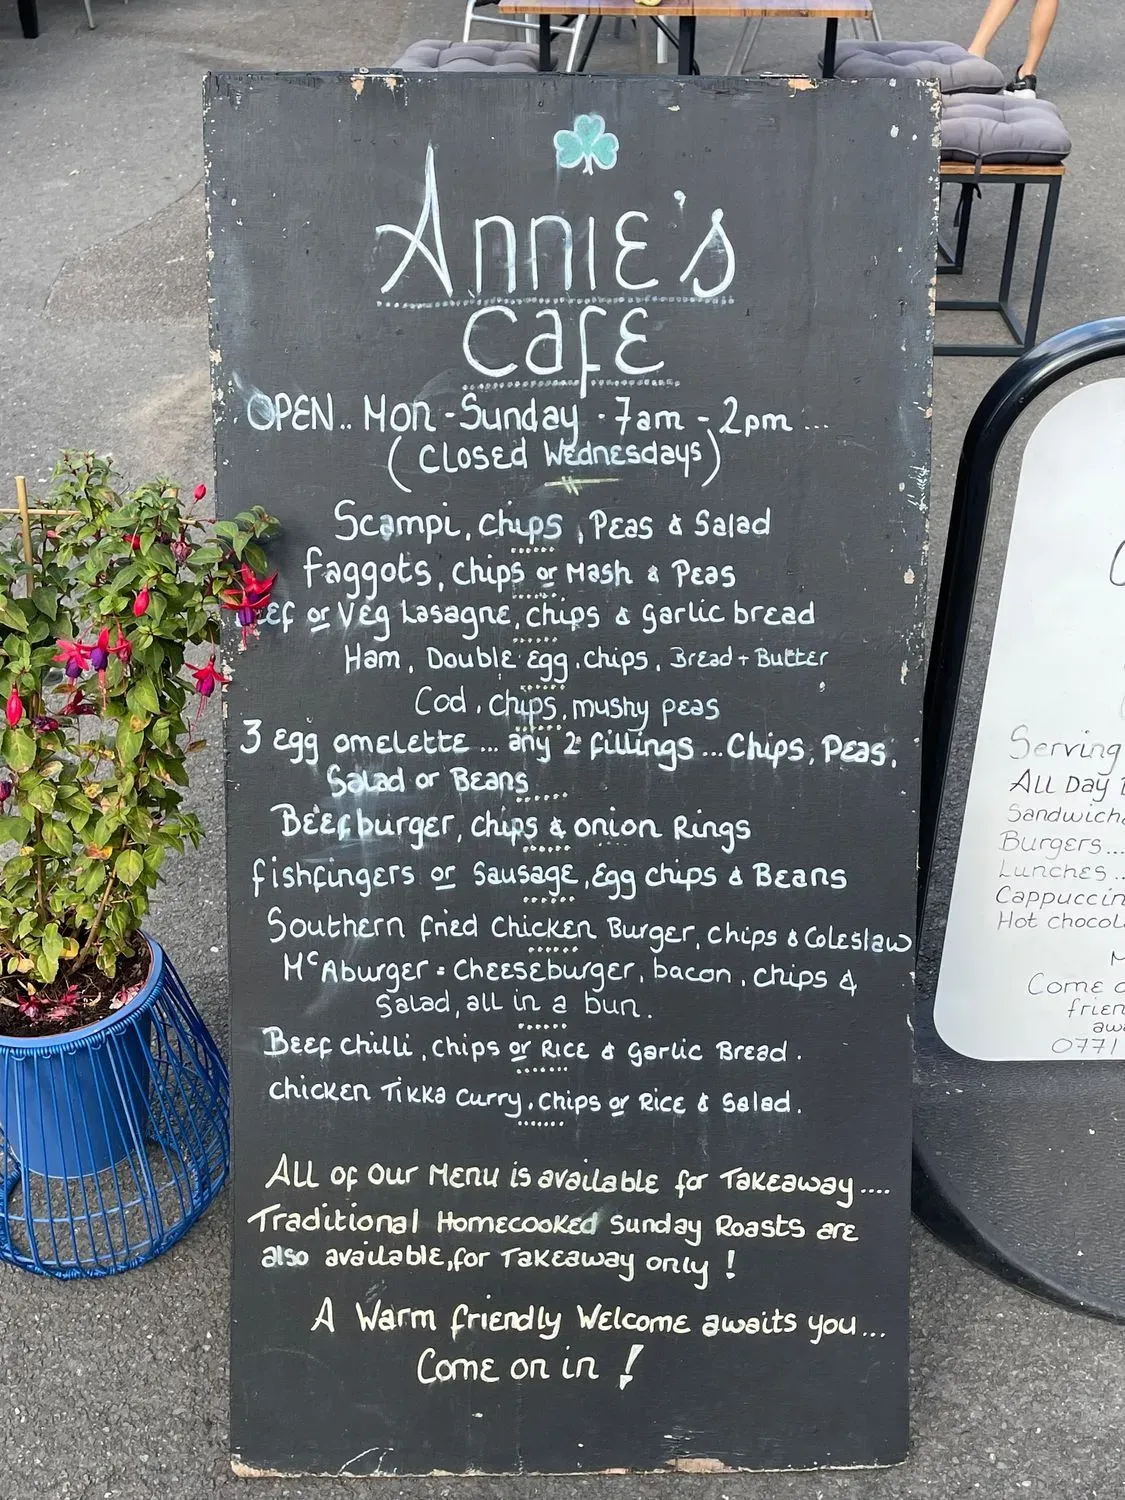 Annie's
Cafe
OPEN.. Mon - Sunday - 7am - 2pm ...
(Closed Wednesdays)
Scampi, Chips, Peas & Salad
Faggots, Chips or Mash & Peas
ef or Veg Lasagne, Chips & Garlic bread
Ham, Double Egg, Chips, Bread + Butter
Cod, Chips, mushy peas
3 Egg omelette ... any 2 fillings ... Chips, Peas,
Salad or Beans
Beefburger, Chips & onion Rings
fishfingers or Sausage, Egg chips & Beans
Southern fried Chicken Burger, Chips & Coleslaw
McAburger = Cheeseburger, bacon, chips &
Salad, all in a bun.
Beef chilli, chips or Rice & Garlic Bread.
Chicken Tikka Curry, Chips or Rice & Salad.
All of our Menu is available for Takeaway....
Traditional Homecooked Sunday Roasts are
also available, for Takeaway only!
A Warm friendly Welcome awaits you...
Come on in!
Serving
All Day
Sandwich
Burgers...
Lunches ..
Cappuccin
Hot chocol
Come
frien
aw
0771